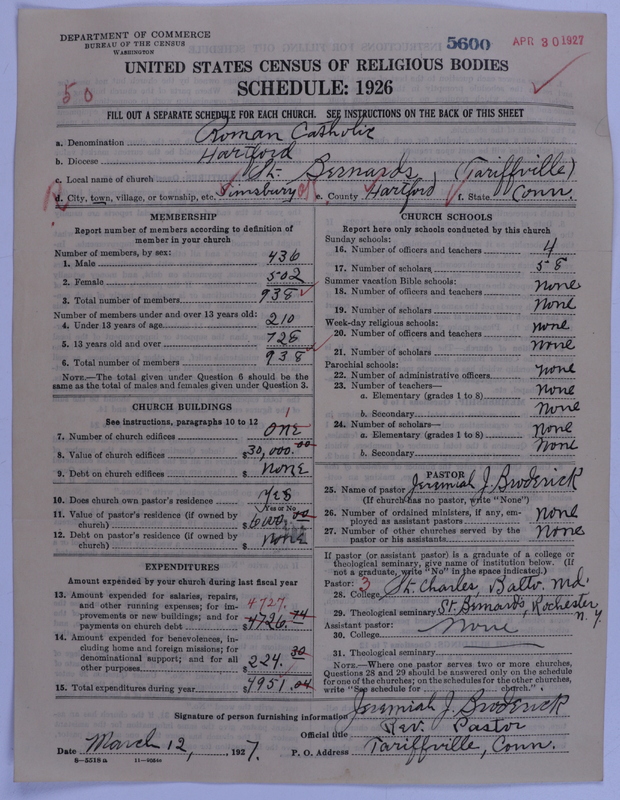 DEPARTMENT OF COMMERCE
BUREAU OF THE CENSUS
WASHINGTON
5600
APR 30 1927
UNITED STATES CENSUS OF RELIGIOUS BODIES
SCHEDULE: 1926
50
FILL OUT A SEPARATE SCHEDULE FOR EACH CHURCH. SEE INSTRUCTIONS ON THE BACK OF THIS SHEET
a. Denomination Roman Catholic
b. Diocese Hartford
c. Local name of church St. Bernards, (Tariffville)
d. City, town, village, or township, etc. Simsbury e. County Hartford f. State Conn.
MEMBERSHIP
Report number of members according to definition of
member in your church
Number of members, by sex:
1. Male 436
2. Female 502
3. Total number of members 938
Number of members under and over 13 years old:
4. Under 13 years of age 210
5. 13 years old and over 728
6. Total number of members 938
NOTE.—The total given under Question 6 should be the
same as the total of males and females given under Question 3.
CHURCH BUILDINGS
See instructions, paragraphs 10 to 12
1
7. Number of church edifices one
8. Value of church edifices $30,000.00
9. Debt on church edifices $ none
10. Does church own pastor's residence yes
Yes or No
11. Value of pastor's residence (if owned by
church) $6000.00
12. Debt on pastor's residence (if owned by
church) $ none
EXPENDITURES
Amount expended by your church during last fiscal year
13. Amount expended for salaries, repairs,
and other running expenses; for im-
provements or new buildings; and for
payments on church debt $4726.74
4727.
14. Amount expended for benevolences, in-
cluding home and foreign missions; for
denominational support; and for all
other purposes $224.30
15. Total expenditures during year $4951.04
CHURCH SCHOOLS
Report here only schools conducted by this church
Sunday schools:
16. Number of officers and teachers 4
17. Number of scholars 58
Summer vacation Bible schools:
18. Number of officers and teachers none
19. Number of scholars none
Week-day religious schools:
20. Number of officers and teachers none
21. Number of scholars none
Parochial schools:
22. Number of administrative officers none
23. Number of teachers—
a. Elementary (grades 1 to 8) none
b. Secondary none
24. Number of scholars—
a. Elementary (grades 1 to 8) none
b. Secondary none
PASTOR
25. Name of pastor Jeremiah J. Broderick
(If church has no pastor, write "None")
26. Number of ordained ministers, if any, em-
ployed as assistant pastors none
27. Number of other churches served by the
pastor or his assistants none
If pastor (or assistant pastor) is a graduate of a college or
theological seminary, give name of institution below. (If
not a graduate, write "No" in the space indicated.)
Pastor: 3
28. College St. Charles, Balto. Md.
29. Theological seminary St. Bernards, Rochester, N.Y.
Assistant pastor:
30. College None
31. Theological seminary
NOTE.—Where one pastor serves two or more churches,
Questions 28 and 29 should be answered only on the schedule
for one of the churches; on the schedules for the other churches,
write "See schedule for church."
Signature of person furnishing information Jeremiah J. Broderick
Official title Rev. Pastor
Date March 12, 1927. P. O. Address Tariffville, Conn.
8—5518 a